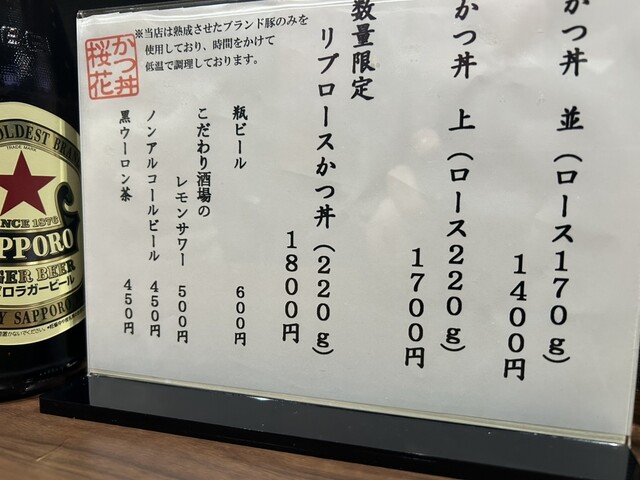 かつ丼 並（ロース170g）
1400円
かつ丼 上（ロース220g）
1700円
数量限定
リブロースかつ丼（220g）
1800円
瓶ビール 600円
こだわり酒場の
レモンサワー 500円
ノンアルコールビール 450円
黒ウーロン茶 450円
※当店は熟成させたブランド豚のみを
使用しており、時間をかけて
低温で調理しております。
かつ丼
桜花
OLDEST BRAND
TRADE MARK
SINCE 1876
SAPPORO
LAGER BEER
サッポロラガービール
BY SAPPORO